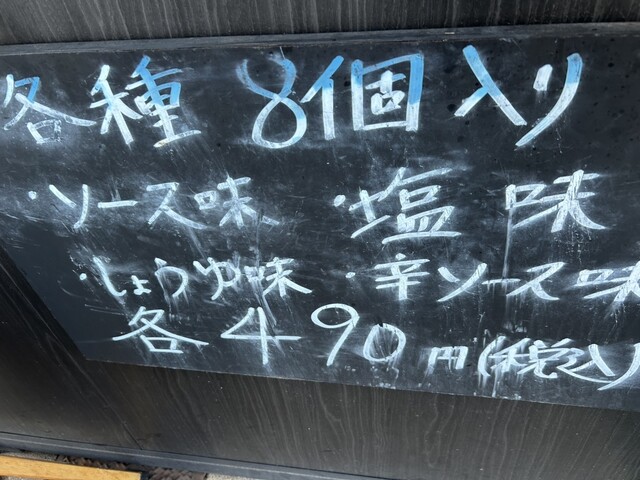 各種 8個入り
・ソース味 ・塩味
・しょうゆ味 ・辛ソース味
各490円(税込)